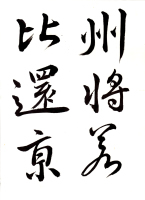 州将若
比還京